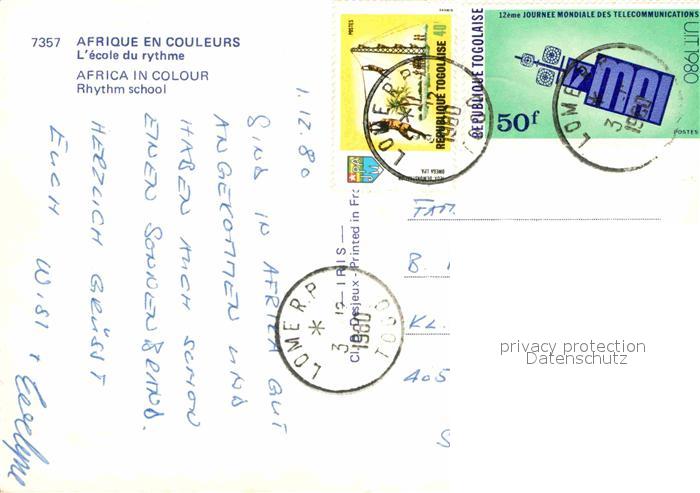 7357 AFRIQUE EN COULEURS
L'école du rythme
AFRICA IN COLOUR
Rhythm school
1.12.80
SIND IN AFRIKA GUT
ANGEKOMMEN UND
HABEN AUCH SCHON
EINEN SONNENBRAND.
HERZLICH GRÜSST
EUCH WISI + Evelyne
IRIS
Desjeux - Printed in Fra
POSTES
REPUBLIQUE TOGOLAISE 40f
12ème JOURNEE MONDIALE DES TELECOMMUNICATIONS
REPUBLIQUE TOGOLAISE
UIT 1980
50f
POSTES
LOME R.P.
3 12
1980
LOME R.P.
3
1980
LOME R.P.
3 12
1980
TOGO
FAM
B.
KL.
405
S
privacy protection
Datenschutz